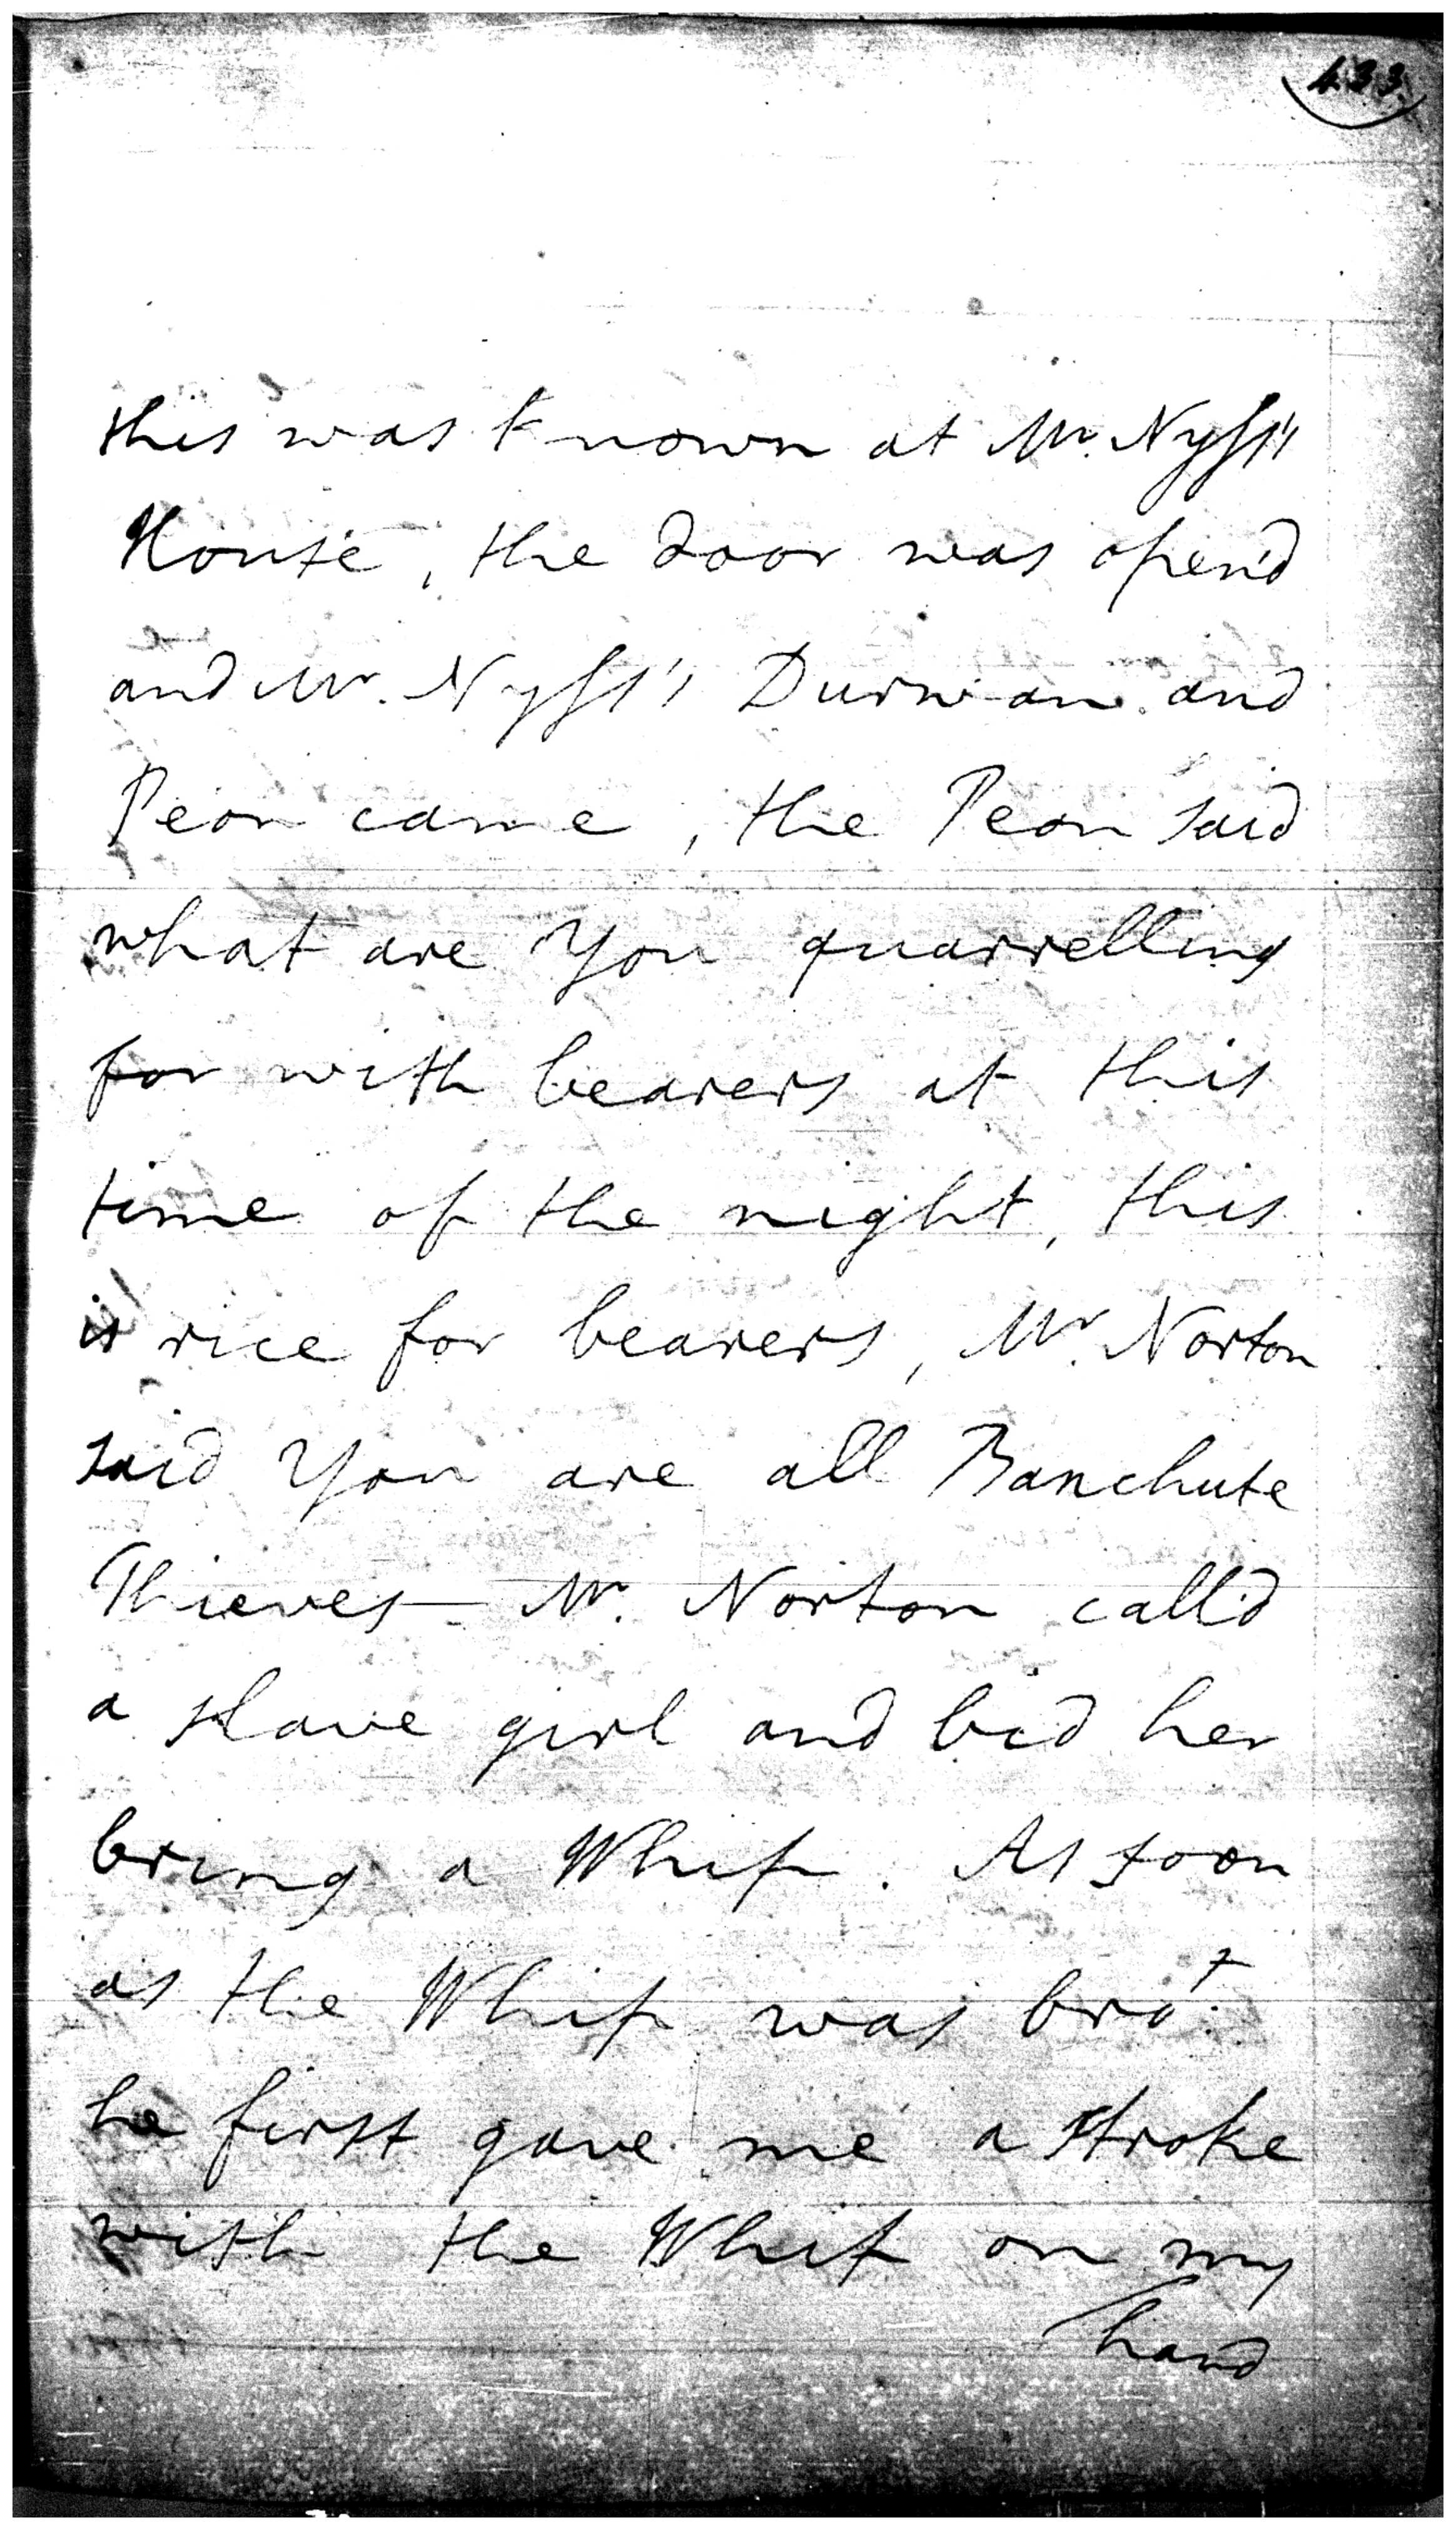 433
this was known at Mr. Nyss's
House, the door was open'd
and Mr. Nyss's Durwan and
Peon came, the Peon said
what are You quarrelling
for with bearers at this
time of the night, this
is rice for bearers, Mr. Norton
said You are all Banchute
Thieves — Mr. Norton call'd
a slave girl and bid her
bring a Whip. As soon
as the Whip was bro.t
he first gave me a stroke
with the Whip on my
hand